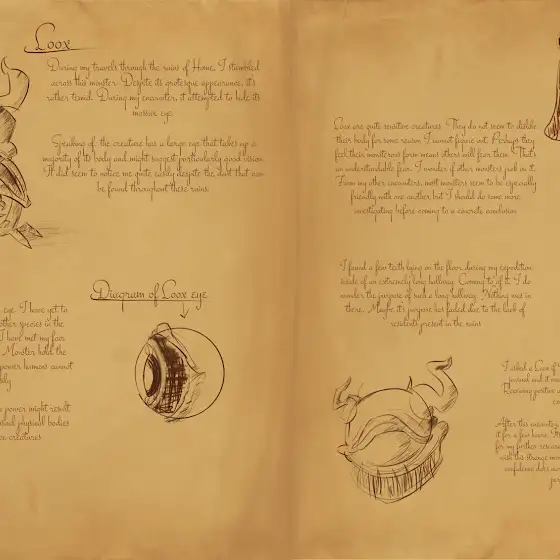 Loox
During my travels through the ruins of Home, I stumbled
across this monster. Despite its grotesque appearance, it's
rather timid. During my encounter, it attempted to hide its
massive eye.
Speaking of, the creature has a large eye that takes up a
majority of its body and might suggest particularly good vision.
It did seem to notice me quite easily despite the dust that can
be found throughout these ruins.
Diagram of Loox eye
eye. I have yet to
other species in the
I have met my fair
Monster hold the
power humans cannot
power might result
physical bodies
creatures
Loox are quite sensitive creatures. They do not seem to dislike
their body for some reason I cannot figure out. Perhaps they
feel their monstrous form means others will fear them. That's
an understandable fear. I wonder if other monsters pick on it.
From my other encounters, most monsters seem to be especially
friendly with one another but I should do some more
investigating before coming to a concrete conclusion.
I found a few teeth lying on the floor during my expedition
inside of an extremely long hallway. Coming to think of it, I do
wonder the purpose of such a long hallway. Nothing was in
there. Maybe it's purpose has faded due to the lack of
residents present in the ruins.
I asked a Loox if
journal and it
Receiving positive
After this encounter,
it for a few hours. It's
for my further research
with this strange
confidence does